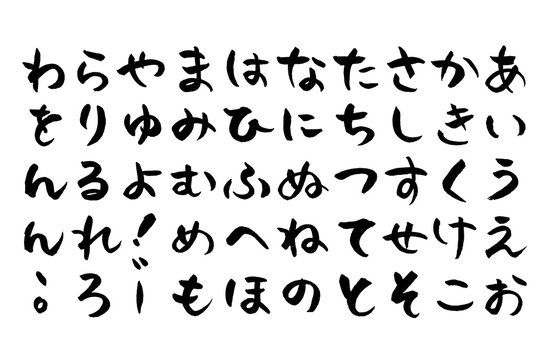 あいうえお
かきくけこ
さしすせそ
たちつてと
なにぬねの
はひふへほ
まみむめも
やゆよ！゛ー
らりるれろ
わをんん、。